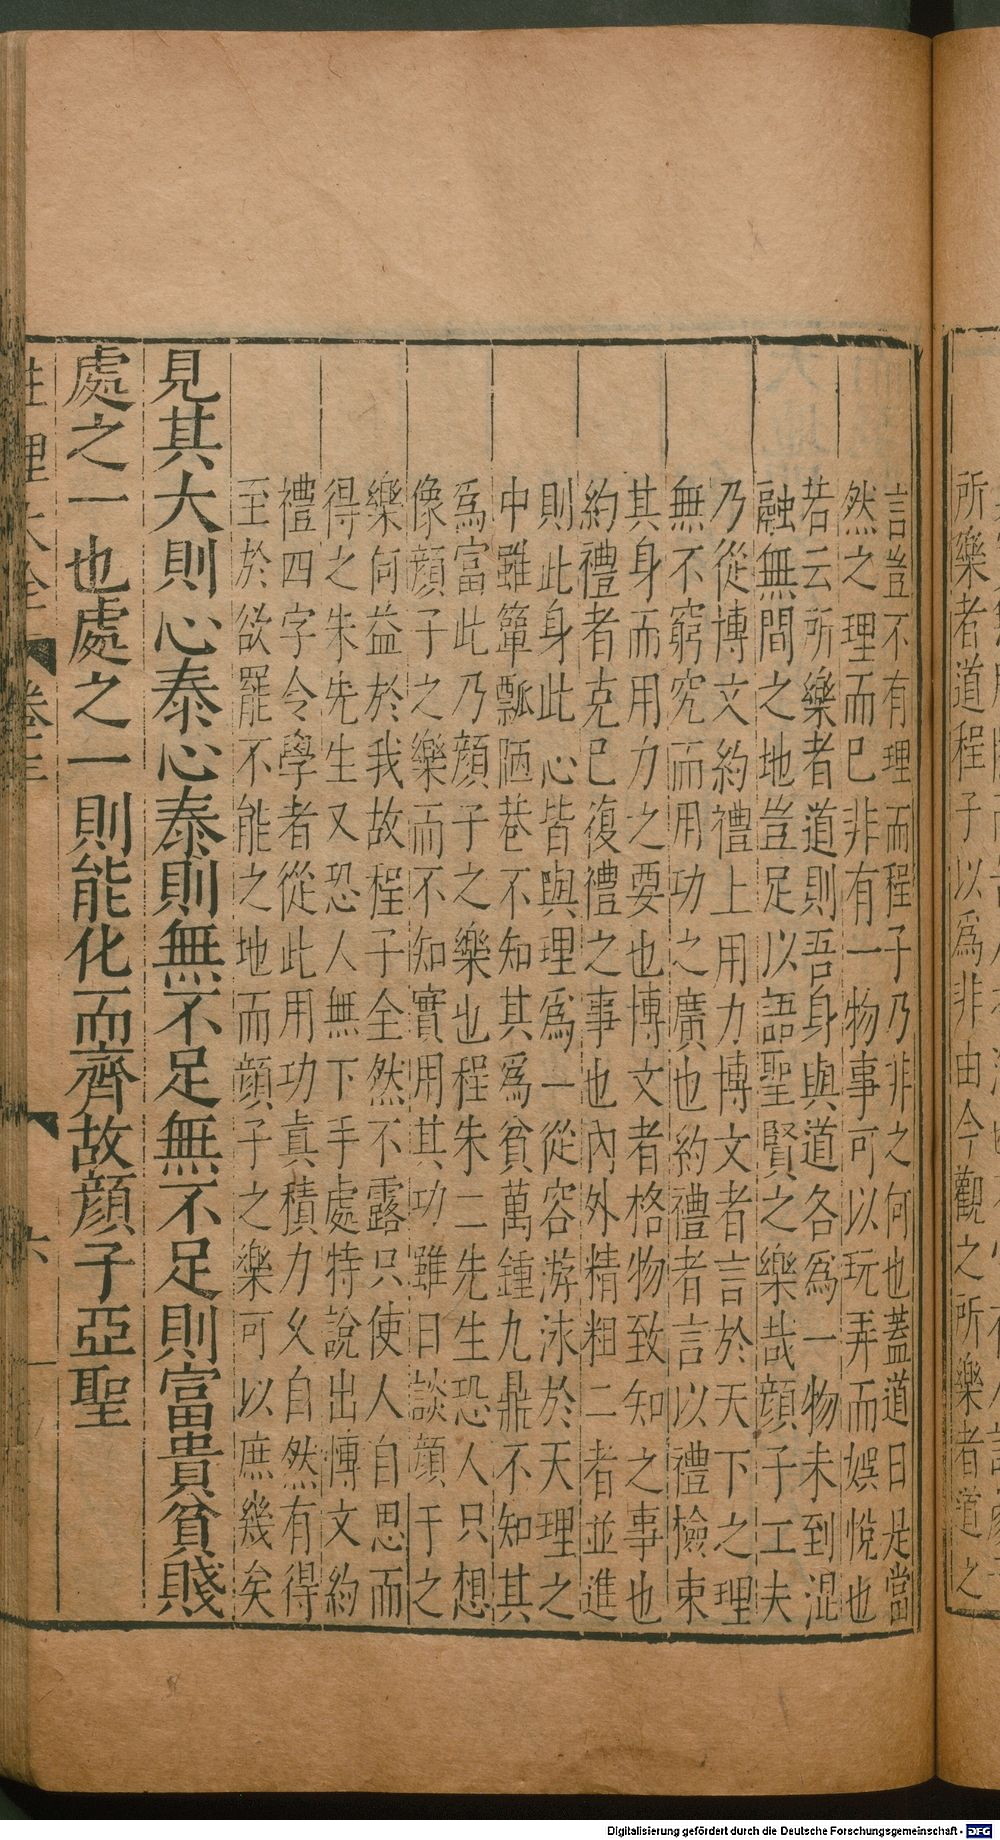 所樂者道程子以爲非由今觀之所樂者道之
言豈不有理而程子乃非之何也蓋道曰是當
然之理而已非有一物事可以玩弄而娛悅也
若云所樂者道則吾身與道各爲一物未到混
融無間之地豈足以語聖賢之樂哉顔子工夫
乃從博文約禮上用力博文者言於天下之理
無不窮究而用功之廣也約禮者言以禮檢束
其身而用力之要也博文者格物致知之事也
約禮者克已復禮之事也內外精粗二者並進
則此身此心皆與理爲一從容游泳於天理之
中雖簞瓢陋巷不知其爲貧萬鍾九鼎不知其
爲富此乃顔子之樂也程朱二先生恐人只想
像顔子之樂而不知實用其功雖日談顔子之
樂何益於我故程子全然不露只使人自思而
得之朱先生又恐人無下手處特說出博文約
禮四字令學者從此用功真積力久自然有得
至於欲罷不能之地而顔子之樂可以庶幾矣
見其大則心泰心泰則無不足無不足則富貴貧賤
處之一也處之一則能化而齊故顔子亞聖
性理大全 卷三 六
Digitalisierung gefördert durch die Deutsche Forschungsgemeinschaft - DFG